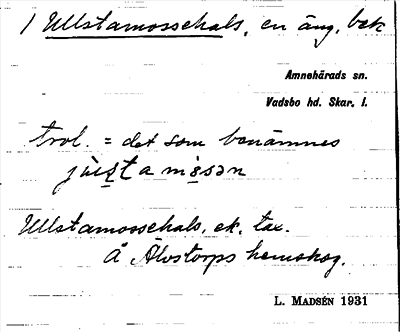 / Ullstamossehals, en äng, bek
Amnehärads sn.
Vadsbo hd. Skar. l.
trol. = det som benämnes
Ullstamossehals, ek. tax.
å Älvstorps hemskog.
L. MADSÉN 1931